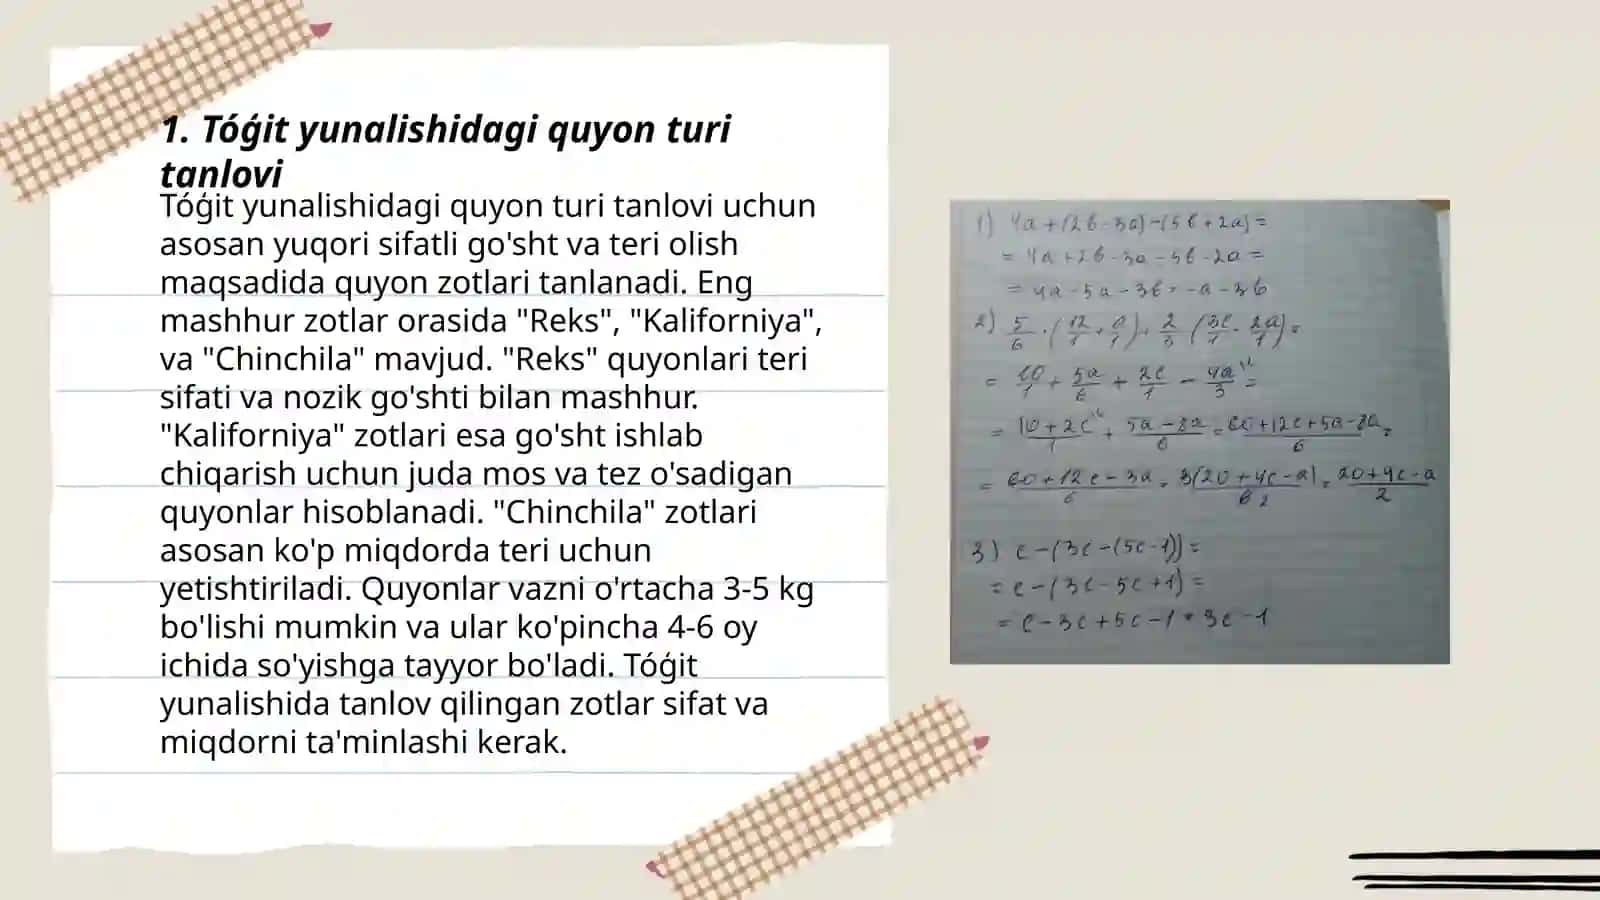 1. Tóǵit yunalishidagi quyon turi
tanlovi
Tóǵit yunalishidagi quyon turi tanlovi uchun
asosan yuqori sifatli go'sht va teri olish
maqsadida quyon zotlari tanlanadi. Eng
mashhur zotlar orasida "Reks", "Kaliforniya",
va "Chinchila" mavjud. "Reks" quyonlari teri
sifati va nozik go'shti bilan mashhur.
"Kaliforniya" zotlari esa go'sht ishlab
chiqarish uchun juda mos va tez o'sadigan
quyonlar hisoblanadi. "Chinchila" zotlari
asosan ko'p miqdorda teri uchun
yetishtiriladi. Quyonlar vazni o'rtacha 3-5 kg
bo'lishi mumkin va ular ko'pincha 4-6 oy
ichida so'yishga tayyor bo'ladi. Tóǵit
yunalishida tanlov qilingan zotlar sifat va
miqdorni ta'minlashi kerak.
1) 4a+(2b-3a)-(5b+2a)=
= 4a+2b-3a-5b-2a=
= 4a-5a-3b=-a-3b
2) 5/6 · (12/1 + a/1) + 2/3 · (3c/1 - 2a/1)=
= 10/1 + 5a/6 + 2c/1 - 4a/3 =
= 10+2c/1 + 5a-8a/6 = 60+12c+5a-8a/6 =
= 60+12c-3a/6 = 3(20+4c-a)/6 2 = 20+4c-a/2
3) c-(3c-(5c-1))=
= c-(3c-5c+1)=
= c-3c+5c-1=3c-1